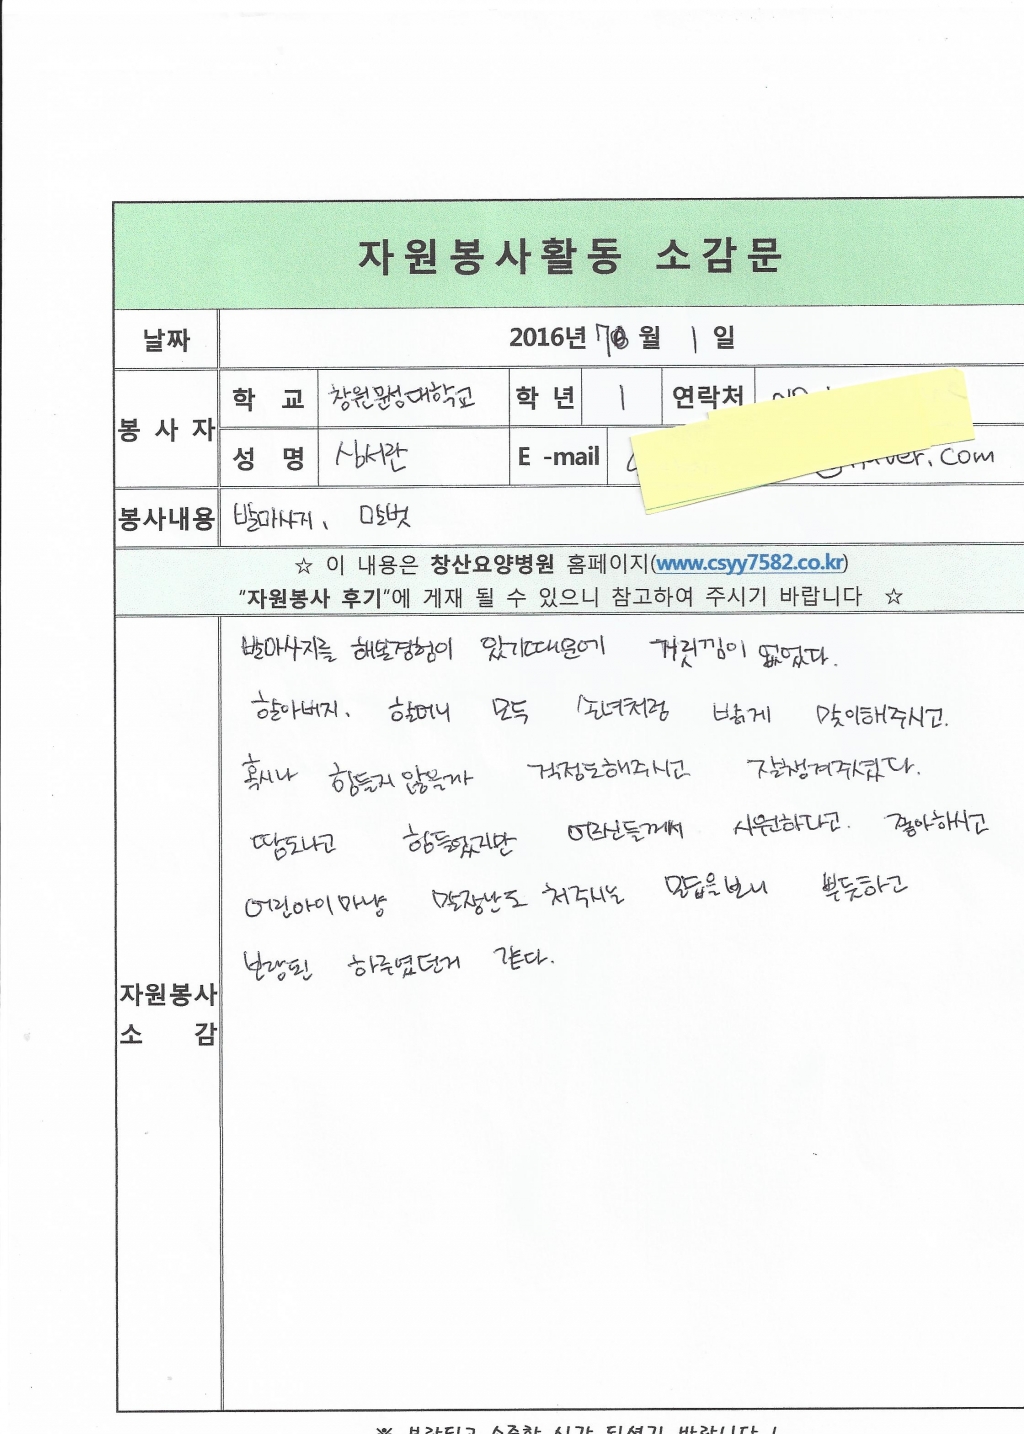 자원봉사활동 소감문
날짜 2016년 월 1 일
봉 사 자
학 교 창원문성대학교 학 년 1 연락처
성 명 심서관 E -mail .com
봉사내용 발마사지, 말벗
☆ 이 내용은 창산요양병원 홈페이지(www.csyy7582.co.kr)
"자원봉사 후기"에 게재 될 수 있으니 참고하여 주시기 바랍니다 ☆
자원봉사
소 감
발마사지를 해본경험이 있기때문에 거릿낌이 없었다.
할아버지, 할머니 모두 소녀처럼 밝게 맞이해주시고.
혹시나 힘들지 않을까 걱정도해주시고 잘챙겨주셨다.
땀도나고 힘들었지만 어르신들께서 시원하다고. 좋아하시고
어린아이마냥 말장난도 쳐주시는 모습을보니 뿌듯하고
보람된 하루였던거 같다.